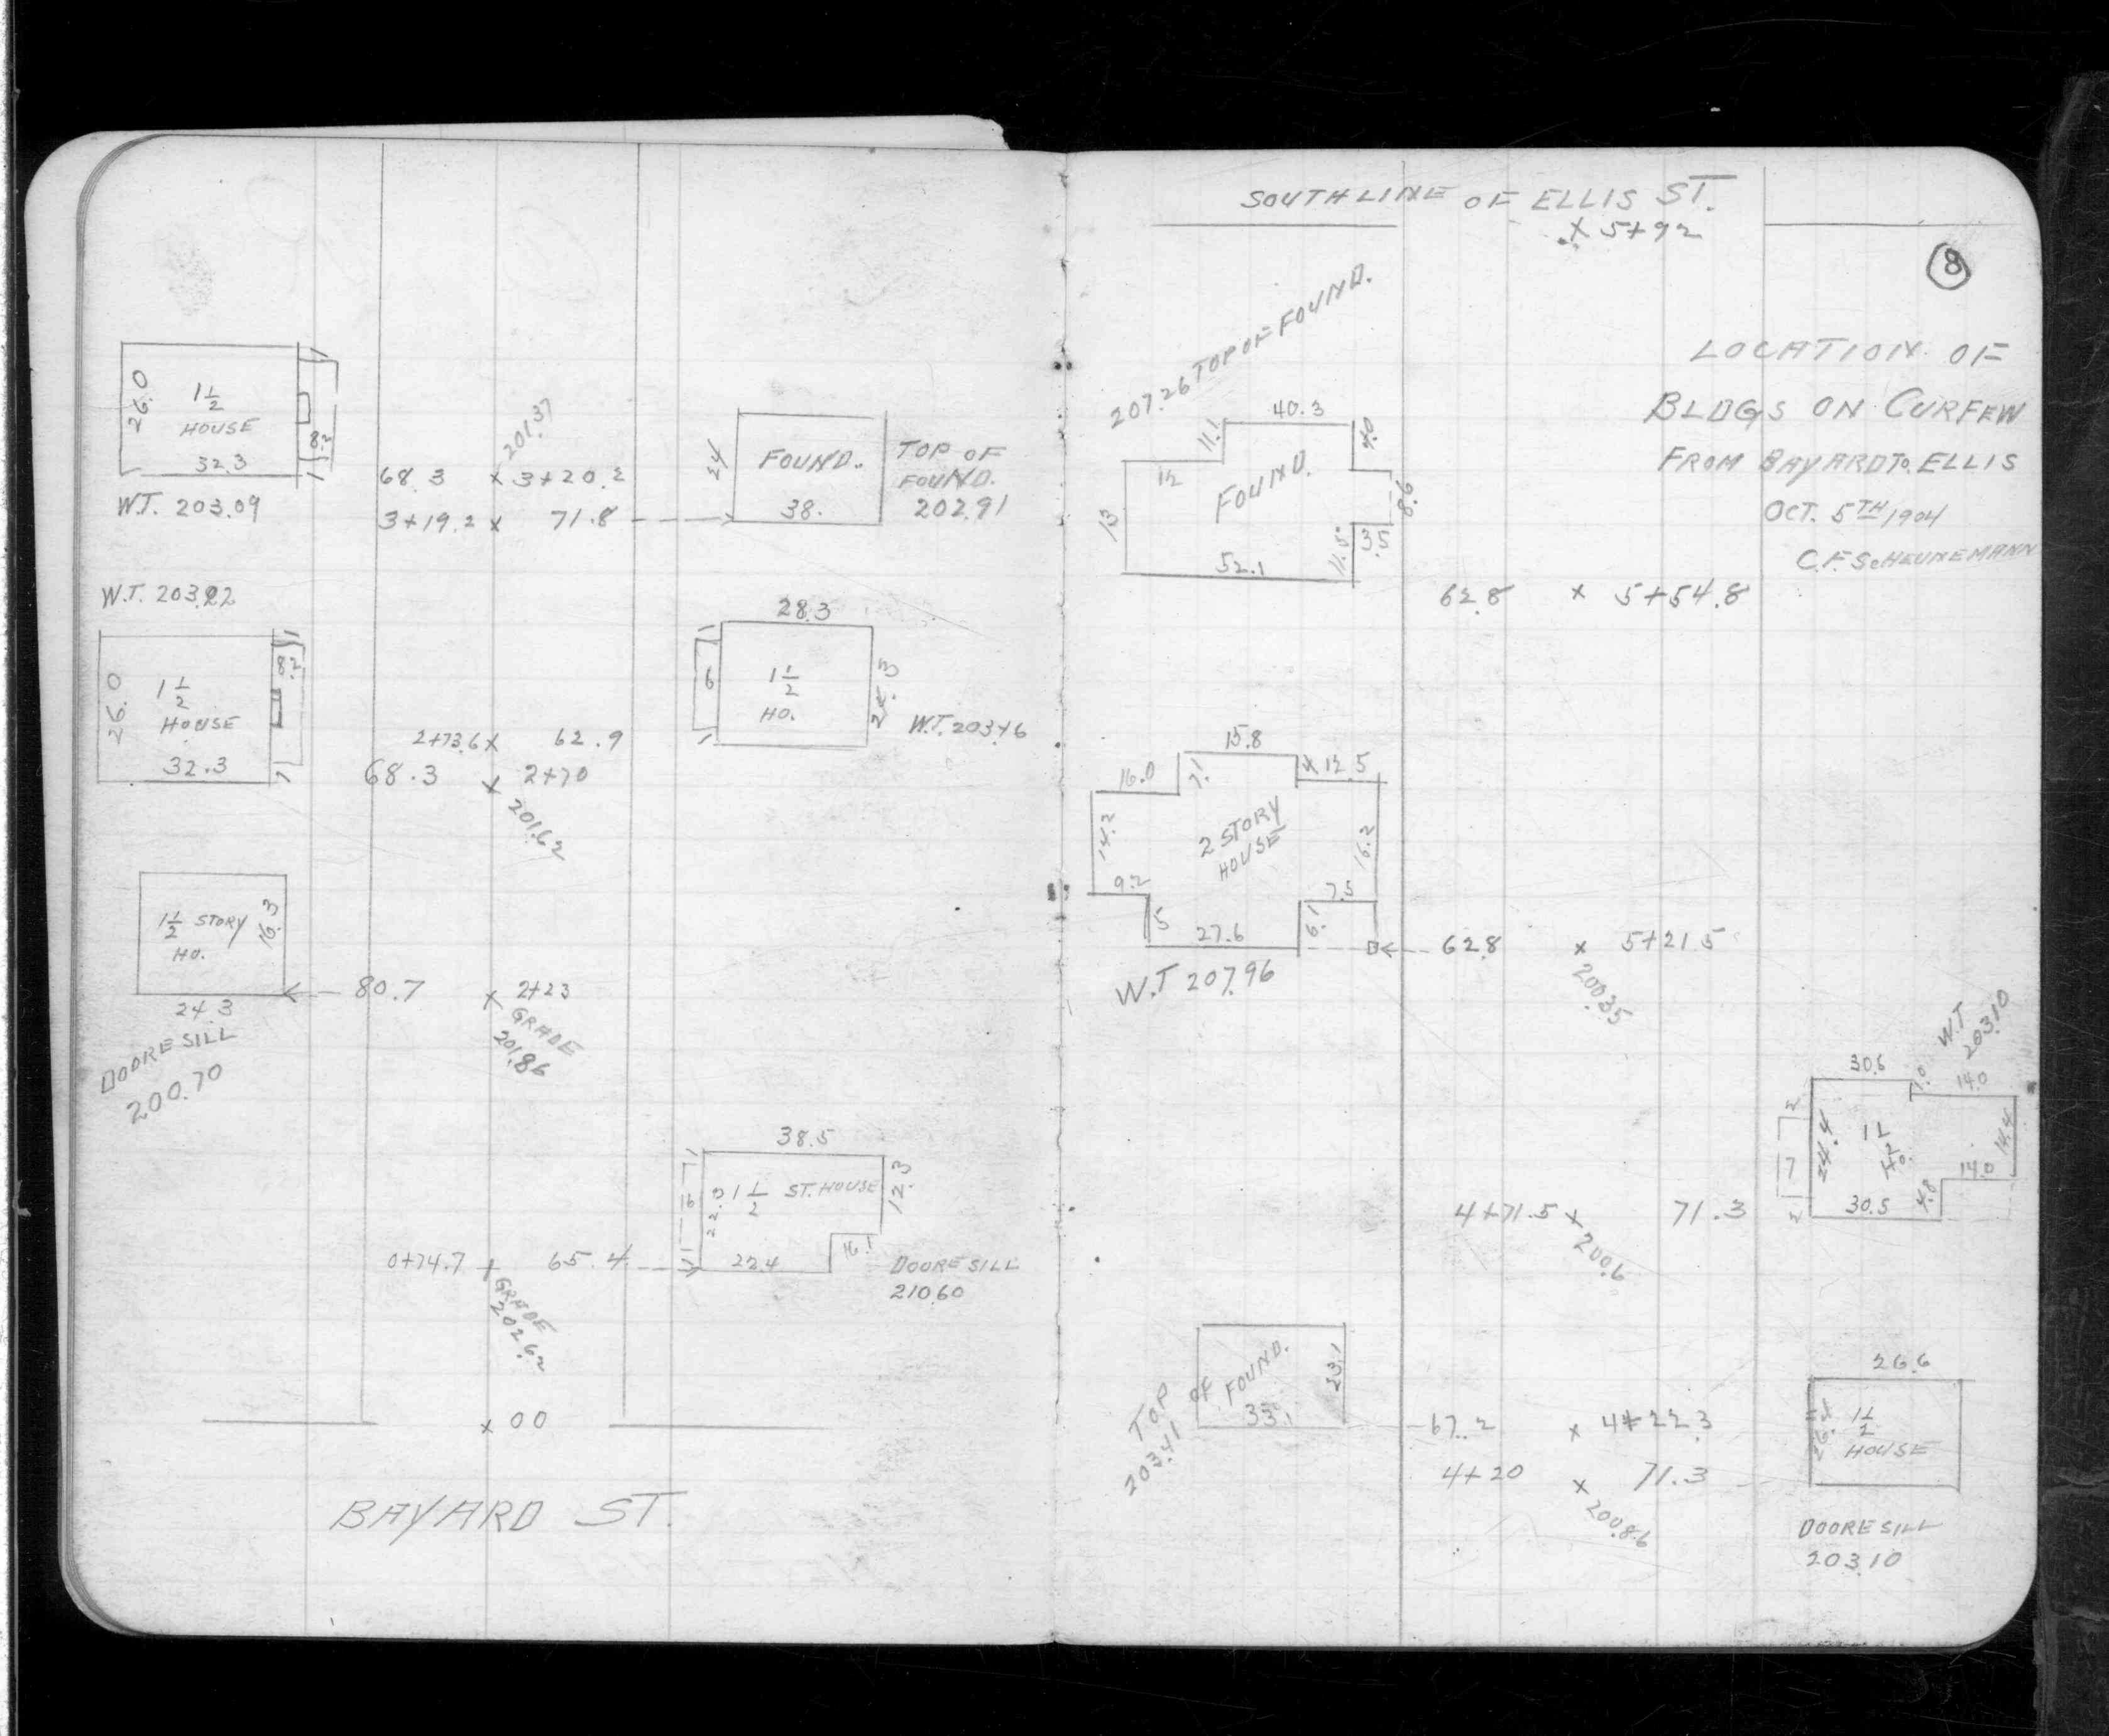 26.0
1 1/2
HOUSE
32.3
8.2
W.T. 203.09
201.37
68.3 x 3+20.2
3+19.2 x 71.8
24
FOUND.
38.
TOP OF
FOUND.
202.91
W.T. 203.22
26.0
1 1/2
HOUSE
32.3
8.2
28.3
6
1 1/2
HO.
W.T. 203.46
2+73.6 x 62.9
68.3 x 2+70
201.62
1 1/2 STORY
HO.
16.3
24.3
DOORE SILL
200.70
80.7 x 2+23
GRADE
201.86
38.5
16
22.3
1 1/2 ST. HOUSE
12.3
22.4
16.1
DOORE SILL
210.60
0+74.7 + 65.4
GRADE
202.62
x 00
BAYARD ST.
SOUTH LINE OF ELLIS ST.
x 5+92
8
LOCATION OF
BLDGS ON CURFEW
FROM BAYARD TO ELLIS
OCT. 5TH 1904
C.F. SCHEUNEMANN
207.26 TOP OF FOUND.
40.3
11.1
12
FOUND.
13
8.6
3.5
11.5
52.1
62.8 x 5+54.8
15.8
16.0
7.1
4 12.5
14.2
2 STORY
HOUSE
16.2
9.2
7.5
5
27.6
6.1
W.T 207.96
62.8 x 5+21.5
200.35
W.T
203.10
30.6
1.0
14.0
2
24.4
1 1/2
Ho.
14.4
17
14.0
4.8
2
30.5
4+71.5 x 71.3
200.6
TOP OF FOUND.
203.41
23.1
33.1
67.2 x 4+22.3
4+20 x 71.3
200.86
26.6
1 1/2
HOUSE
DOORE SILL
203.10